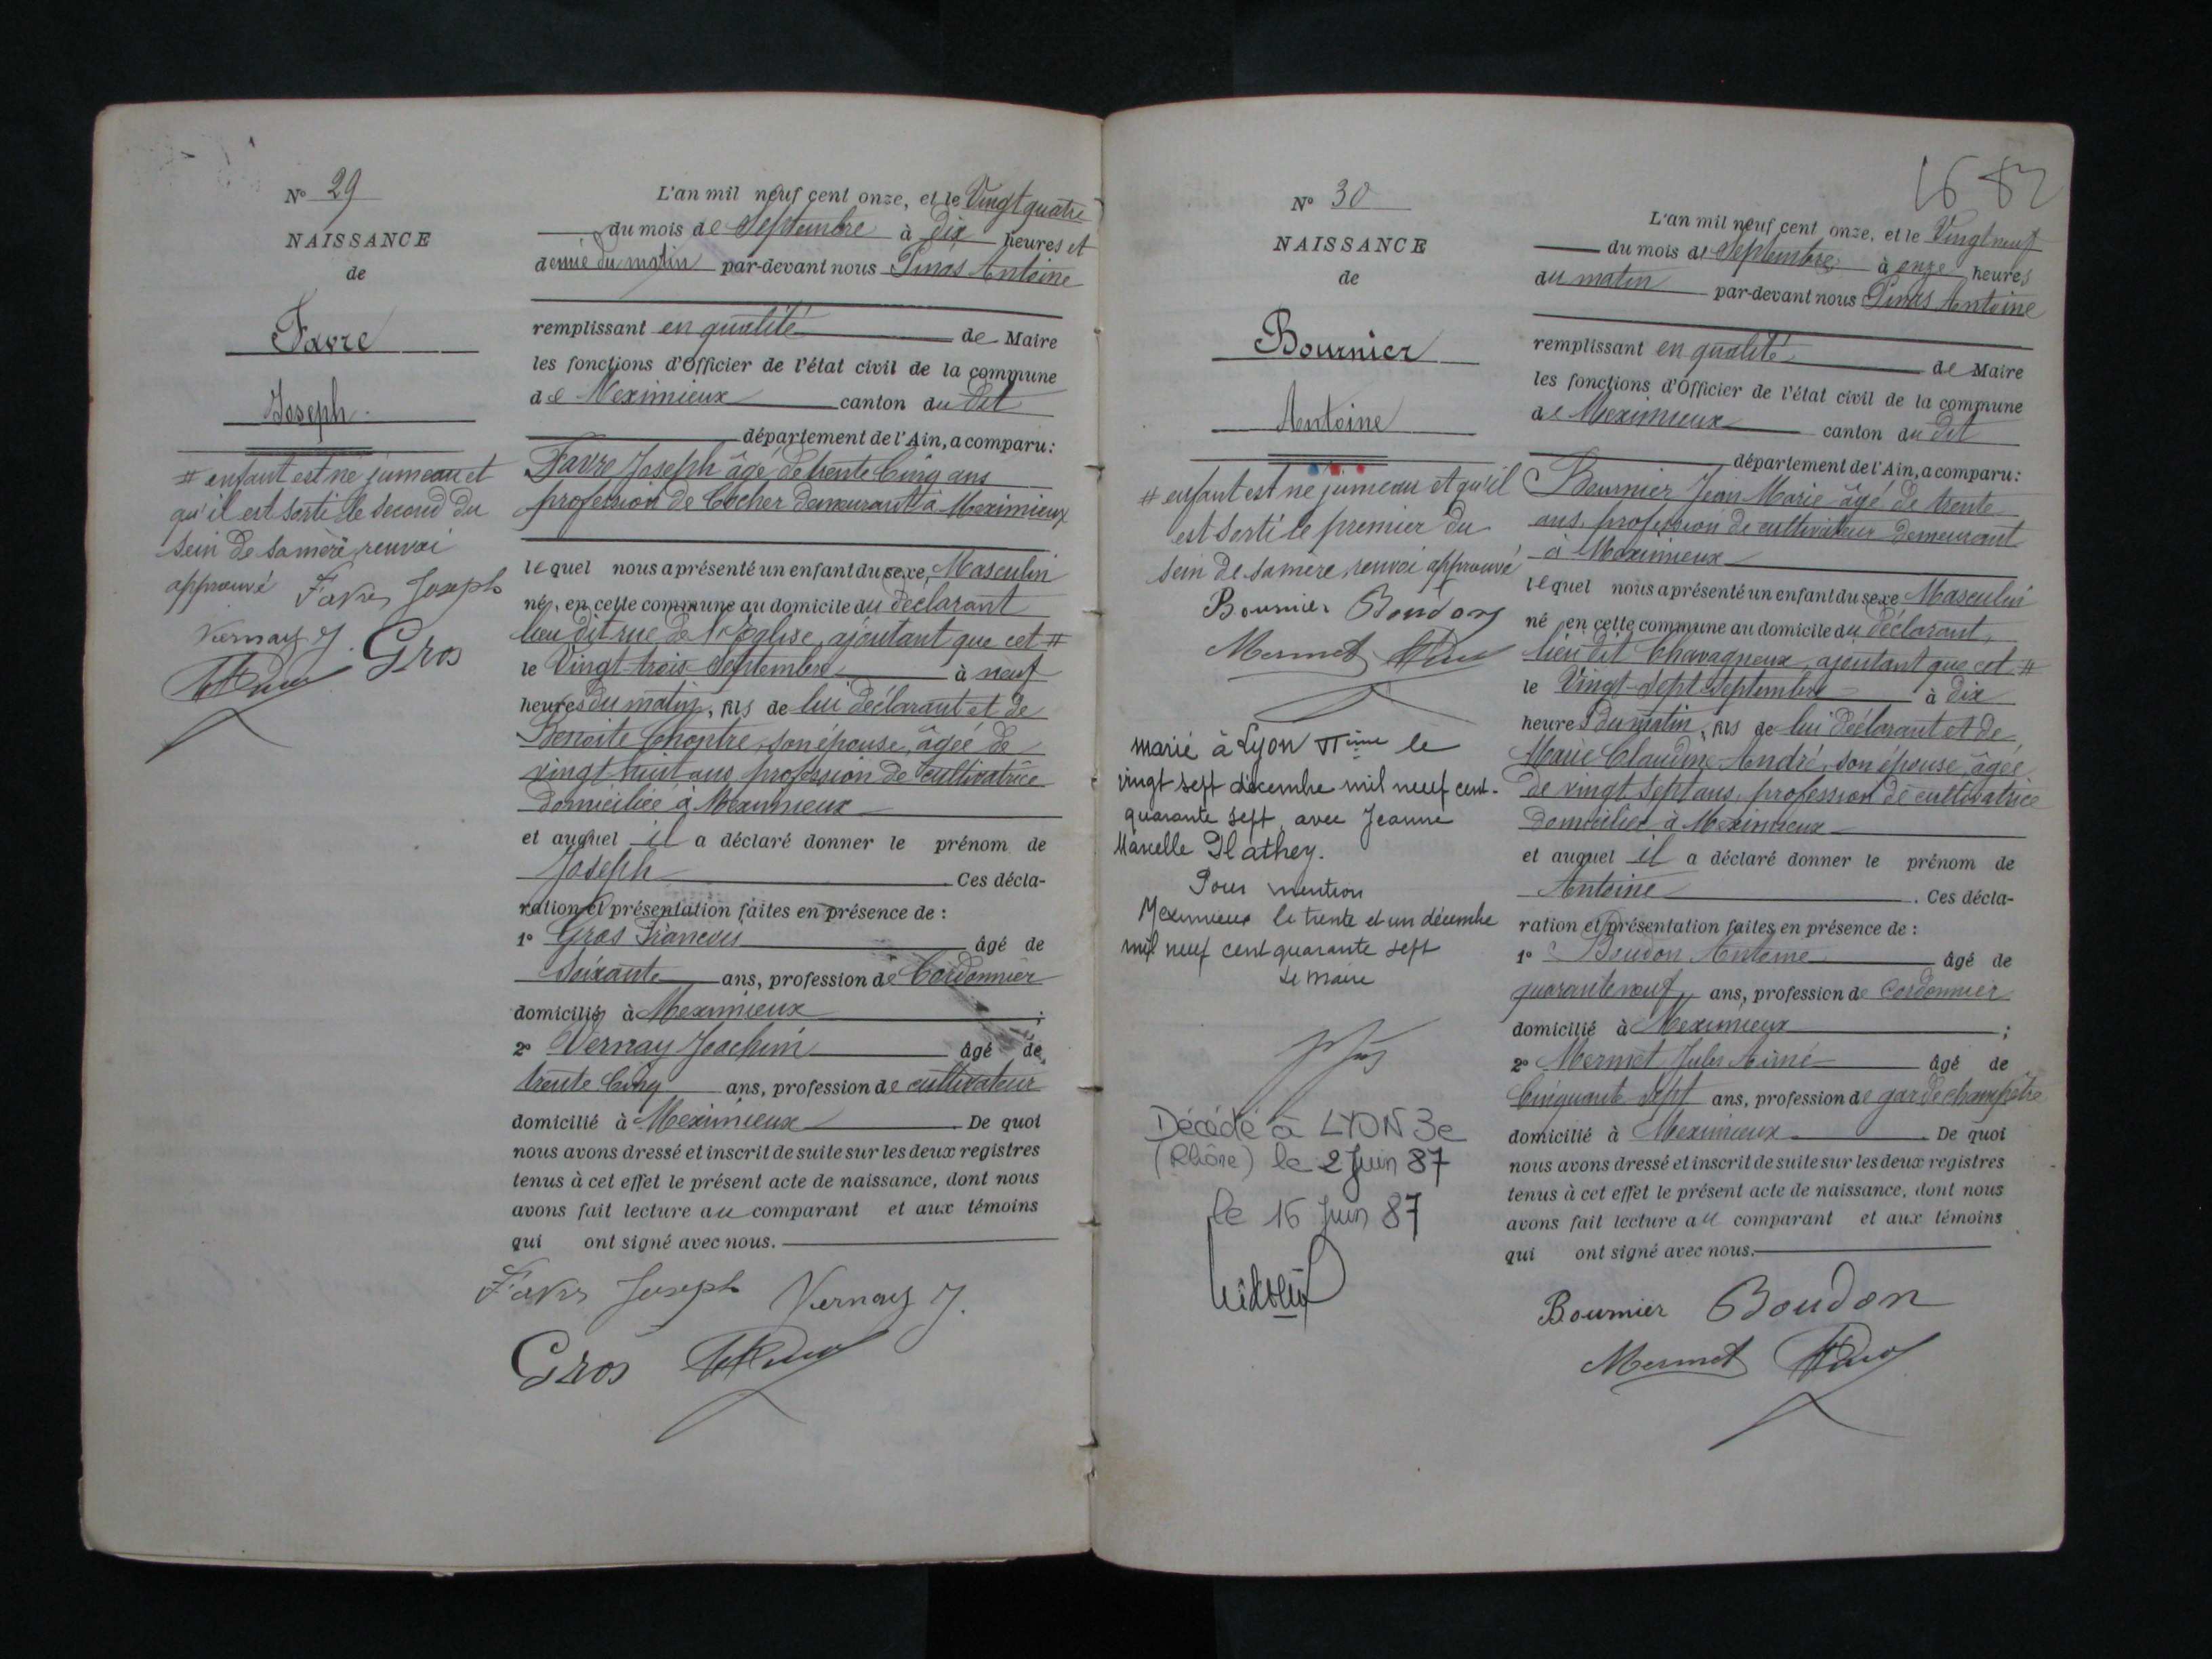 N° 29
NAISSANCE
de
Favre
Joseph
# enfant est né jumeau et
qu'il est sorti le second du
sein de sa mère, renvoi
approuvé Favre Joseph
Vernay J. Gros
L'an mil neuf cent onze, et le Vingt quatre
du mois de Septembre à dix heures et
demie du matin par-devant nous Antoine
remplissant en qualité de Maire
les fonctions d'Officier de l'état civil de la commune
de Meximieux canton du dit
département de l'Ain, a comparu:
Favre Joseph âgé de trente Cinq ans
profession de Cocher demeurant à Meximieux
lequel nous a présenté un enfant du sexe Masculin
né, en cette commune au domicile du déclarant
lieu dit rue de l'Eglise, ajoutant que cet #
le Vingt-trois Septembre à neuf
heures du matin, fils de lui déclarant et de
Benoite Choptre, son épouse, âgée de
vingt huit ans, profession de cultivatrice
domiciliée à Meximieux
et auquel il a déclaré donner le prénom de
Joseph Ces décla-
ration et présentation faites en présence de :
1° Gros Francois âgé de
Soixante ans, profession de Cordonnier
domicilié à Meximieux ;
2° Vernay Joachim âgé de
trente Cinq ans, profession de cultivateur
domicilié à Meximieux De quoi
nous avons dressé et inscrit de suite sur les deux registres
tenus à cet effet le présent acte de naissance, dont nous
avons fait lecture au comparant et aux témoins
qui ont signé avec nous.
Favre Joseph Vernay J.
Gros
N° 30
NAISSANCE
de
Bournier
Antoine
# enfant est né jumeau et qu'il
est sorti le premier du
sein de sa mère, renvoi approuvé
Bournier Boudon
Mermet
marié à Lyon le
vingt sept décembre mil neuf cent
quarante sept avec Jeanne
Marcelle Plathey.
Pour mention
Meximieux le trente et un décembre
mil neuf cent quarante sept
Le Maire
Décédé à LYON 3e
(Rhône) le 2 Juin 87
le 16 Juin 87
16 82
L'an mil neuf cent onze, et le Vingt neuf
du mois de Septembre à onze heures
du matin par-devant nous Antoine
remplissant en qualité de Maire
les fonctions d'Officier de l'état civil de la commune
de Meximieux canton du dit
département de l'Ain, a comparu:
Bournier Jean Marie âgé de trente
ans, profession de cultivateur demeurant
à Meximieux
lequel nous a présenté un enfant du sexe Masculin
né, en cette commune au domicile du déclarant,
lieu dit Chavagneux, ajoutant que cet #
le Vingt-Sept Septembre à dix
heures du matin, fils de lui déclarant et de
Marie Claudine André, son épouse, âgée
de vingt Sept ans, profession de cultivatrice
domiciliée à Meximieux
et auquel il a déclaré donner le prénom de
Antoine . Ces décla-
ration et présentation faites en présence de :
1° Boudon Antoine âgé de
quarante neuf ans, profession de Cordonnier
domicilié à Meximieux ;
2° Mermet Jules Aimé âgé de
Cinquante Sept ans, profession de garde champêtre
domicilié à Meximieux De quoi
nous avons dressé et inscrit de suite sur les deux registres
tenus à cet effet le présent acte de naissance, dont nous
avons fait lecture au comparant et aux témoins
qui ont signé avec nous.
Bournier Boudon
Mermet